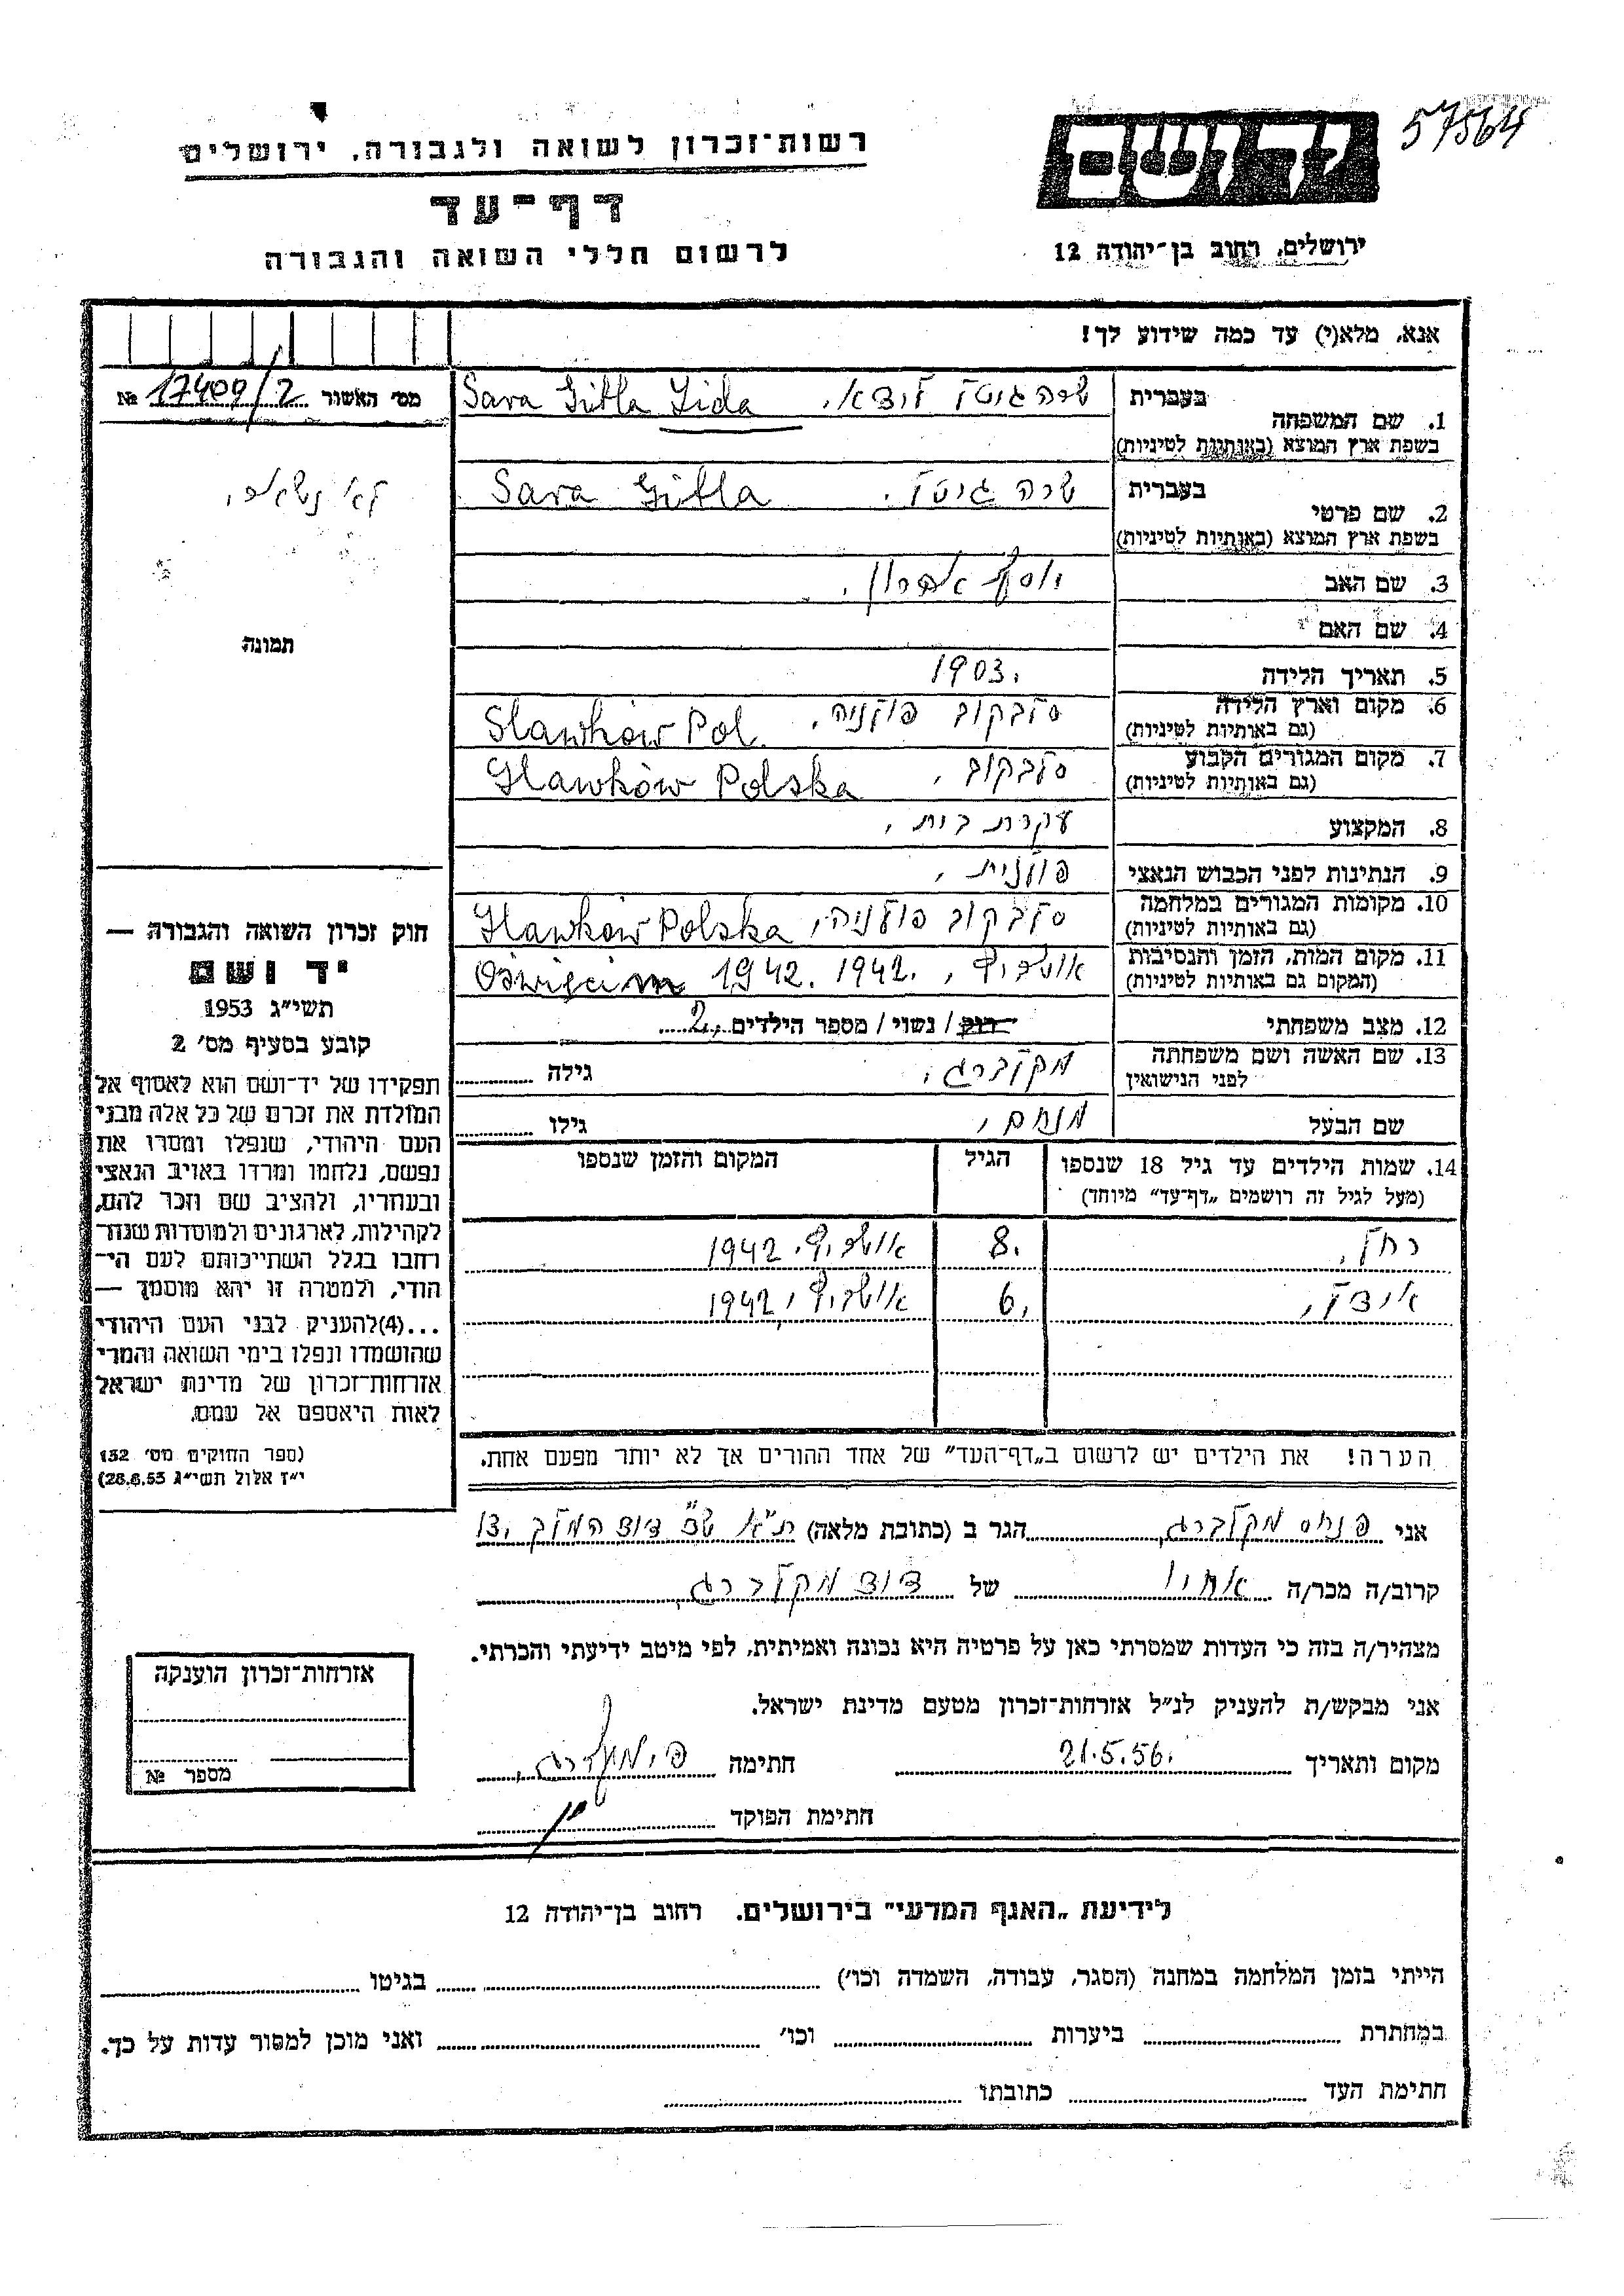 57564
יד ושם
ירושלים, רחוב בן־יהודה 12
רשות־זכרון לשואה ולגבורה, ירושלים
דף־עד
לרשום חללי השואה והגבורה
אנא, מלא(י) עד כמה שידוע לך!
מס׳ האשור 17409/2 №
לא נשאר.
תמונה
1. שם המשפחה בעברית שרה גיטל לידא. Sara Gitla Lida
בשפת ארץ המוצא (באותיות לטיניות)
2. שם פרטי בעברית שרה גיטל. Sara Gitla
בשפת ארץ המוצא (באותיות לטיניות)
3. שם האב יוסף אהרון.
4. שם האם
5. תאריך הלידה 1903.
6. מקום וארץ הלידה סלבקוב פולניה, Sławków Pol.
(גם באותיות לטיניות)
7. מקום המגורים הקבוע סלבקוב, Sławków Polska
(גם באותיות לטיניות)
8. המקצוע עקרת בית,
9. הנתינות לפני הכבוש הנאצי פולנית,
10. מקומות המגורים במלחמה סלבקוב פולניה, Sławków Polska
(גם באותיות לטיניות)
11. מקום המות, הזמן והנסיבות אושביץ, 1942. 1942. Oświęcim
(המקום גם באותיות לטיניות)
12. מצב משפחתי רוק / נשוי / מספר הילדים 2,
13. שם האשה ושם משפחתה מקלברג, גילה
לפני הנישואין
שם הבעל מנחם, גילו
14. שמות הילדים עד גיל 18 שנספו הגיל המקום והזמן שנספו
(מעל לגיל זה רושמים „דף־עד״ מיוחד)
רחל, 8. אושביץ, 1942
6, אושביץ, 1942
הערה! את הילדים יש לרשום ב„דף־העד״ של אחד ההורים אך לא יותר מפעם אחת.
חוק זכרון השואה והגבורה —
יד ושם
תשי״ג 1953
קובע בסעיף מס׳ 2
תפקידו של יד־ושם הוא לאסוף אל
המולדת את זכרם של כל אלה מבני
העם היהודי, שנפלו ומסרו את
נפשם, נלחמו ומרדו באויב הנאצי
ובעוזריו, ולהציב שם וזכר להם,
לקהילות, לארגונים ולמוסדות שנח־
רבו בגלל השתייכותם לעם הי־
הודי, ולמטרה זו יהא מוסמך —
...(4)להעניק לבני העם היהודי
שהושמדו ונפלו בימי השואה והמרי
אזרחות־זכרון של מדינת ישראל
לאות היאספם אל עמם.
(ספר החוקים מס׳ 132
י״ז אלול תשי״ג 28.8.53)
אני פנחס מקלברג, הגר ב (כתובת מלאה) ת״א שד׳ דוד המלך
קרוב/ה מכר/ה אחיו של דוד מקלברג,
מצהיר/ה בזה כי העדות שמסרתי כאן על פרטיה היא נכונה ואמיתית, לפי מיטב ידיעתי והכרתי.
אני מבקש/ת להעניק לנ״ל אזרחות־זכרון מטעם מדינת ישראל.
מקום ותאריך 21.5.56. חתימה
חתימת הפוקד
אזרחות־זכרון הוענקה
מספר №
לידיעת „האגף המדעי״ בירושלים. רחוב בן־יהודה 12
הייתי בזמן המלחמה במחנה (הסגר, עבודה, השמדה וכו׳) בגיטו
במחתרת ביערות וכו׳ ואני מוכן למסור עדות על כך.
חתימת העד כתובתו